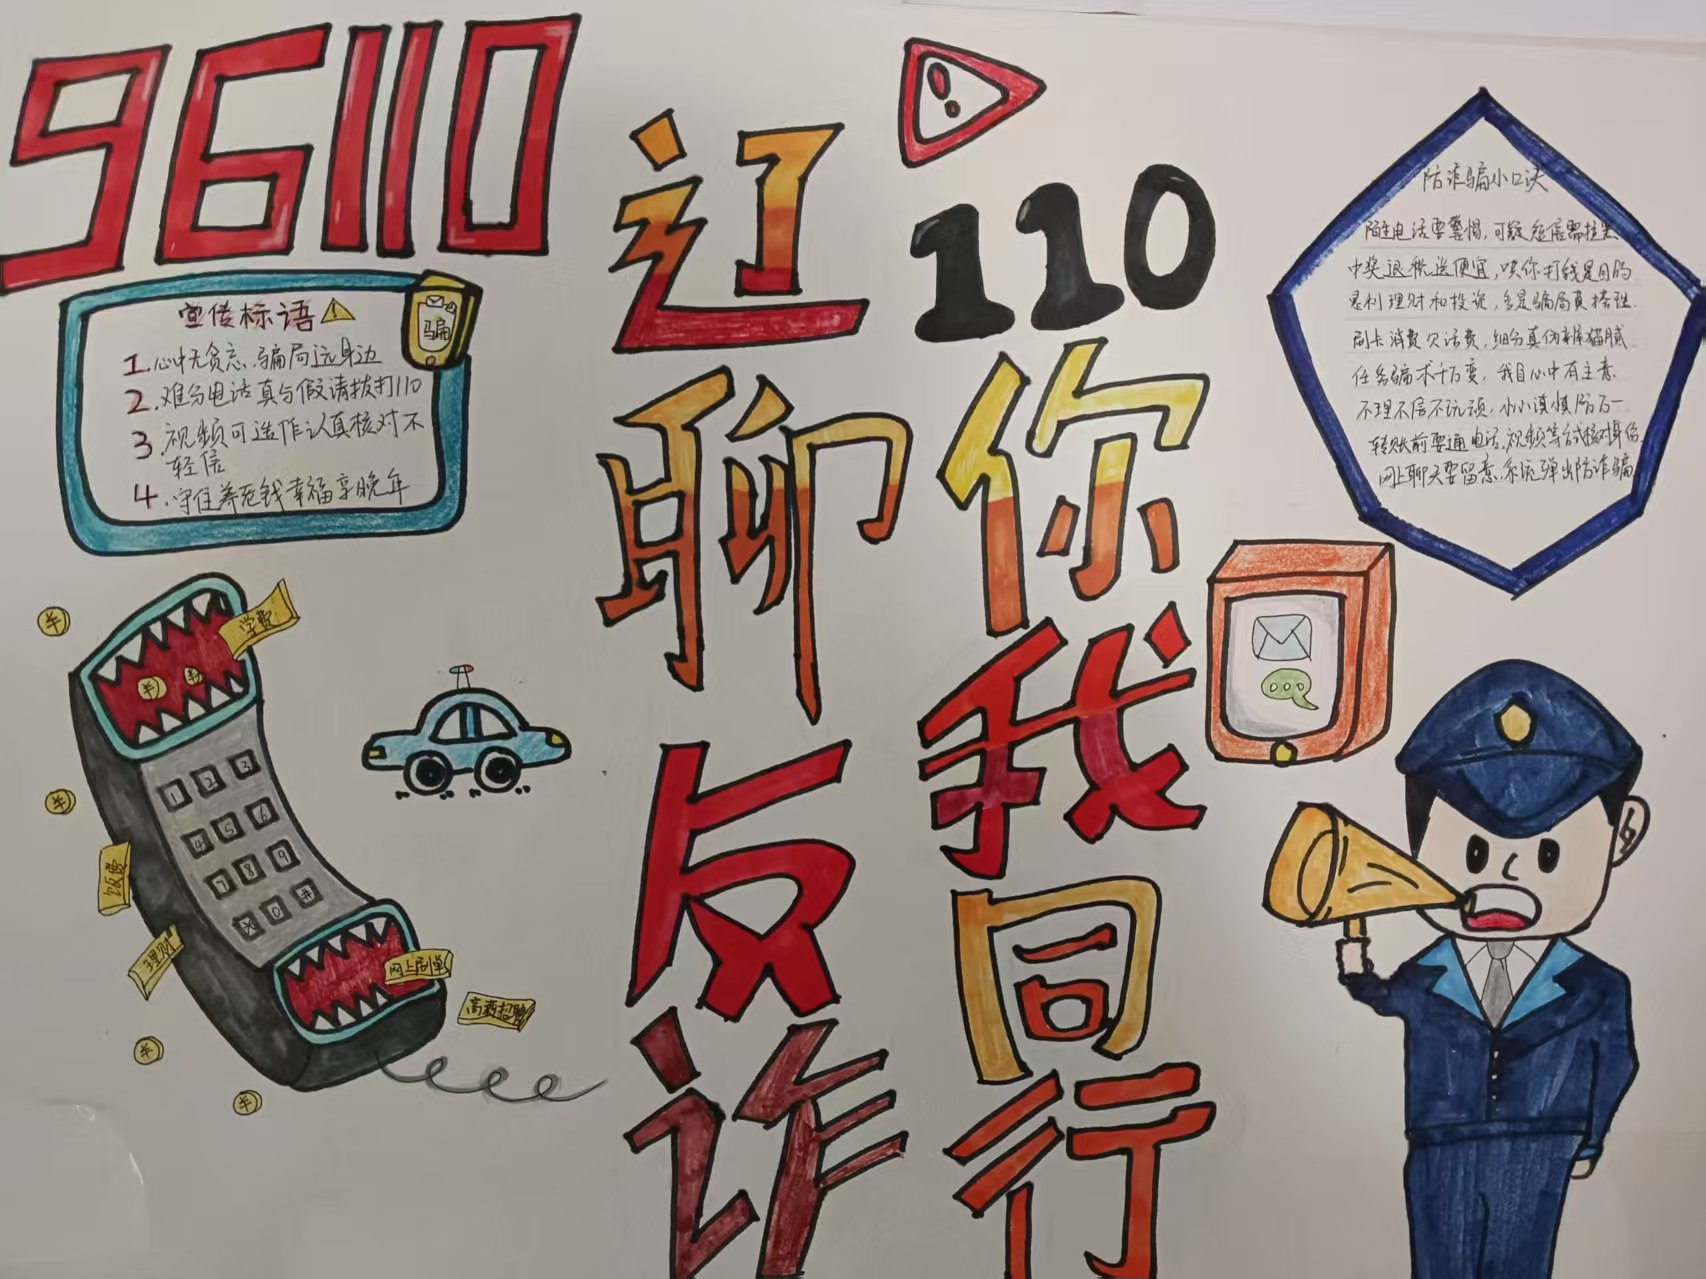 96110
宣传标语
骗
1.心中无贪念.骗局远身边
2.难分电话真与假请拨打110
3.视频可造作认真核对不
轻信
4.守住养老钱幸福享晚年
学费
1 2 3
4 5 6
7 8 9
* 0 #
饭费
理财
网上刷单
高薪招聘
辽聊反诈
110你我同行
防诈骗小口诀
陌生电话要警惕,可疑短信需
中奖退税送便宜,哄你打钱是目的
暴利理财和投资,多是骗局莫搭理
刷卡消费欠话费,细分真伪辨猫腻
任务骗术千万变,我自心中有主意
不理不信不
小小谨慎防万一
转账前要通电话,视频等方式核对身份
网上聊天要留意.系统弹出防诈骗